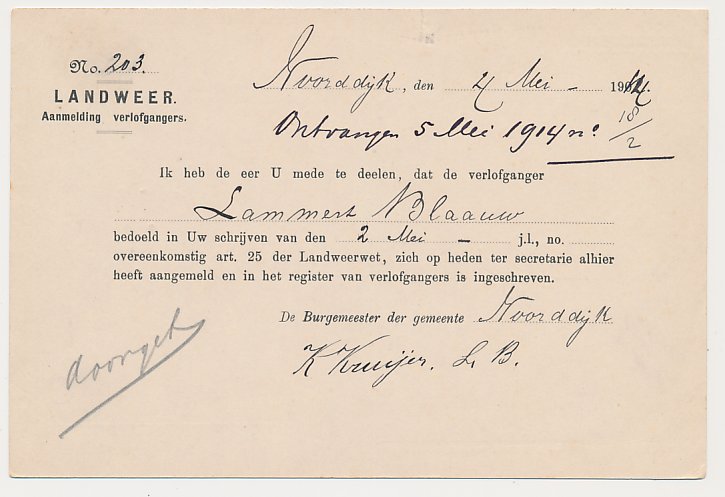 No. 203.
LANDWEER.
Aanmelding verlofgangers.
Noorddijk, den 4 Mei - 1914.
Ontvangen 5 Mei 1914 no. 18/2
Ik heb de eer U mede te deelen, dat de verlofganger
Lammert Blaauw
bedoeld in Uw schrijven van den 2 Mei - j.l., no.
overeenkomstig art. 25 der Landweerwet, zich op heden ter secretarie alhier
heeft aangemeld en in het register van verlofgangers is ingeschreven.
De Burgemeester der gemeente Noorddijk
K Kruijer. L. B.